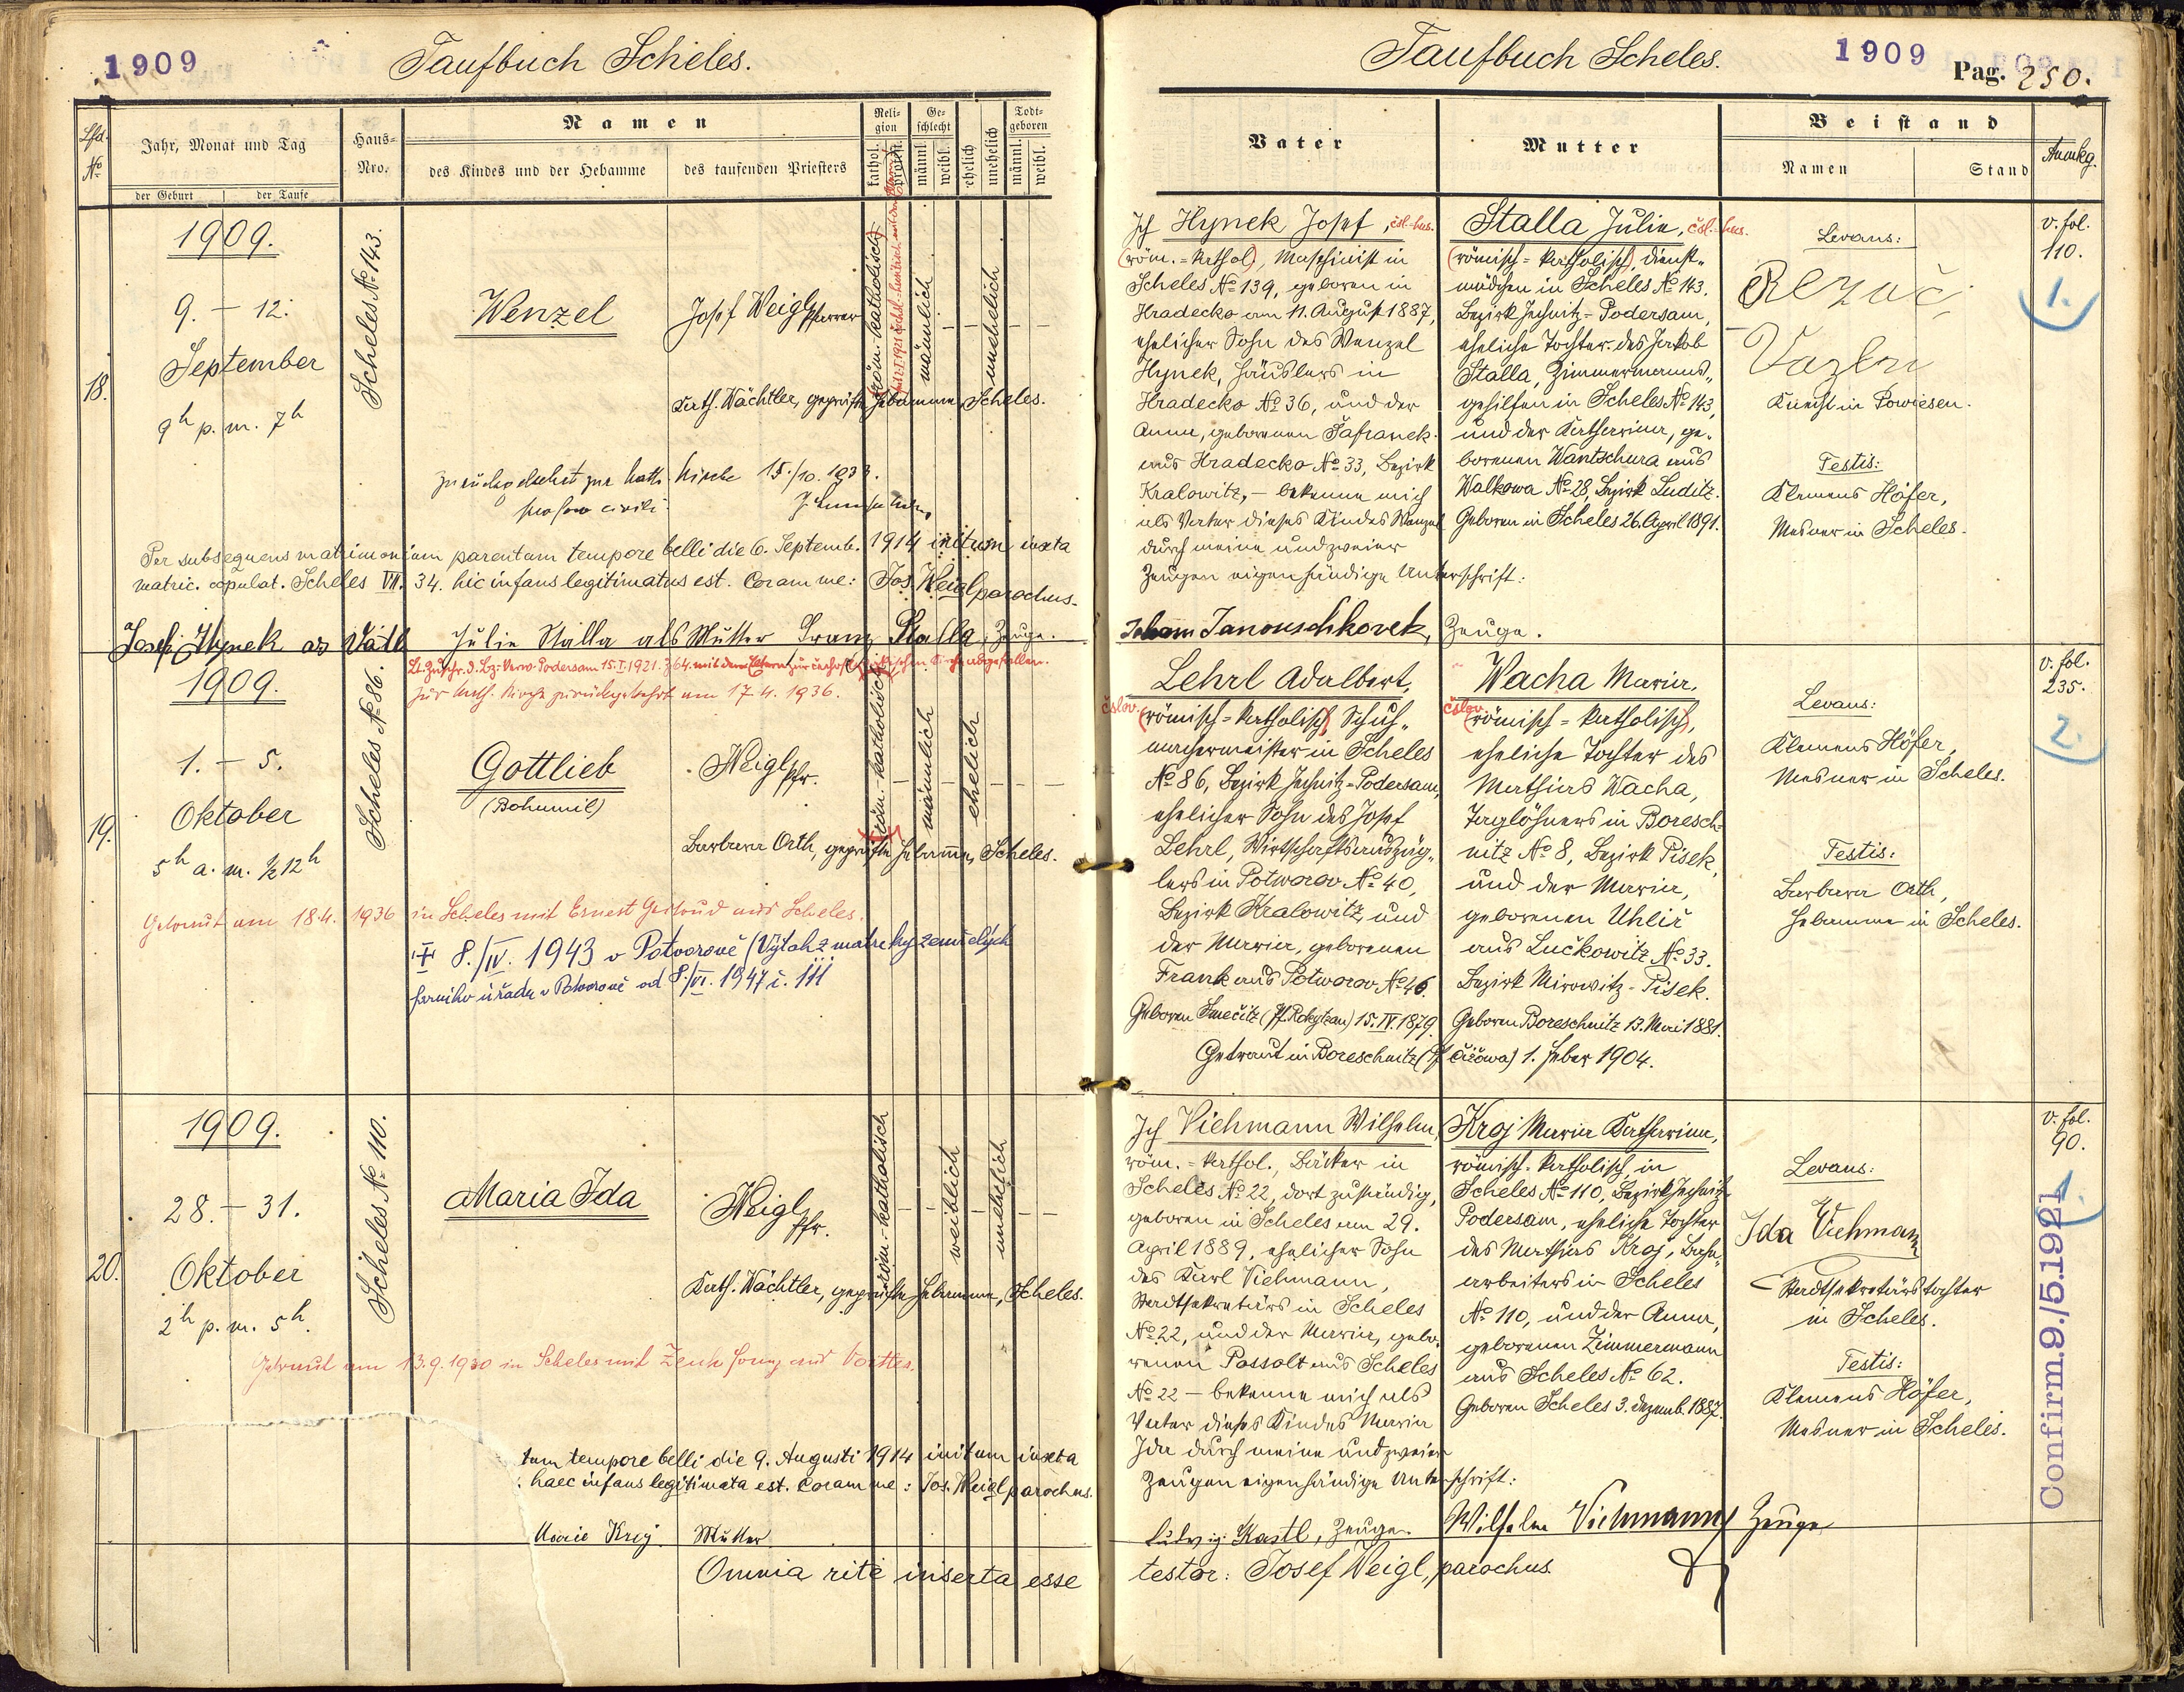 1909
Taufbuch Scheles.
Lfd. No
Jahr, Monat und Tag
der Geburt
der Taufe
Haus-Nro.
Namen
des Kindes und der Hebamme
des taufenden Priesters
Religion
kathol.
Geschlecht
männl.
weibl.
ehelich
unehelich
Todtgeboren
männl.
weibl.
18.
1909.
9. – 12.
September
9h p. m. 7h
Scheles No 143.
Wenzel
Josef Weigl Pfarrer
röm.-katholisch
männlich
unehelich
Kath. Wächtler, geprüfte Hebamme, Scheles.
kath. Kirche 15./10. 1933.
pro foro civili
Per subsequens matrimonium parentum tempore belli die 6. Septemb. 1914 initum iuxta
matric. copulat. Scheles VII. 34. hic infans legitimatus est. Coram me: Jos. Weigl parochus.
Josef Hynek als Vater Julie Stalla als Mutter Franz Stalla, Zeuge.
19.
1909.
1. – 5.
Oktober
5h a. m. ½12h
Scheles No 86.
zur kath. Kirche zurückgekehrt am 17.4. 1936.
Gottlieb
(Bohumil)
Weigl Pfr.
röm.-katholisch
männlich
ehelich
Barbara Orth, geprüfte Hebamme, Scheles.
Getraut am 18.4. 1936 in Scheles mit Ernest
aus Scheles.
8./IV. 1943 v Potvorově (Výtah z matriky zemřelých
farního úřadu v Potvorově od 8./VI. 1947 č. 111
20.
1909.
28. – 31.
Oktober
2h p. m. 5h.
Scheles No 110.
Maria Ida
Weigl Pfr.
röm.-katholisch
weiblich
unehelich
Kath. Wächtler, geprüfte Hebamme, Scheles.
Getraut am 13.9.1930 in Scheles mit Zenk
tum tempore belli die 9. Augusti 1914 initum iuxta
haec infans legitimata est. Coram me: Jos. Weigl parochus.
Marie Kroj Mutter
Omnia rite inserta esse
Taufbuch Scheles.
1909
Pag. 250.
Vater
Mutter
Beistand
Namen
Stand
Anmkg.
Ich Hynek Josef, čsl.-hus.
(röm.-kathol), Maschinist in
Scheles No 139, geboren in
Hradecko am 11. August 1887,
ehelicher Sohn des Wenzel
Hynek, Häuslers in
Hradecko No 36, und der
Anna, geborenen Šafranek
aus Hradecko No 33, Bezirk
Kralowitz, – bekenne mich
als Vater dieses Kindes Wenzel
durch meine und zweier
Zeugen eigenhändige Unterschrift:
Johann Janouschkovek, Zeuge.
Stalla Julie, čsl.-hus.
(römisch-katholisch), Dienst-
mädchen in Scheles No 143,
Bezirk Jechnitz-Podersam,
eheliche Tochter des Jakob
Stalla, Zimmermanns-
gehilfen in Scheles No 143,
und der Katharina, ge-
borenen Wantschura aus
Walkowa No 28, Bezirk Luditz.
Geboren in Scheles 26. April 1891.
Levans:
Knecht in Powiesen.
Testis:
Klemens Höfer,
Mesner in Scheles.
v. fol.
110.
1.
Lehrl Adalbert,
čslov. (römisch-katholisch) Schuh-
machermeister in Scheles
No 86, Bezirk Jechnitz-Podersam,
ehelicher Sohn des Josef
Lehrl, Wirtschaftsauszüg-
lers in Potworov No 40,
Bezirk Kralowitz, und
der Maria, geborenen
Frank aus Potworov No 46.
Geboren Smečitz (Pf. Rokytzan) 15. IV. 1879.
Getraut in Boreschnitz (Pf. Čížowa) 1. Feber 1904.
Wacha Maria,
čslov. (römisch-katholisch),
eheliche Tochter des
Mathias Wacha,
Taglöhners in Boresch-
nitz No 8, Bezirk Pisek,
und der Maria,
geborenen Uhliř
aus Lučkowitz No 33.
Bezirk Mirowitz-Pisek.
Geboren Boreschnitz 13. Mai 1881.
Levans:
Klemens Höfer,
Mesner in Scheles.
Testis:
Barbara Orth,
Hebamme in Scheles.
v. fol.
235.
2.
Ich Viehmann Wilhelm,
röm.-kathol., Bäcker in
Scheles No 22, dort zuständig,
geboren in Scheles am 29.
April 1889, ehelicher Sohn
des Karl Viehmann,
Stadtsekretärs in Scheles
No 22, und der Maria, gebo-
renen Possolt aus Scheles
No 22 – bekenne mich als
Vater dieses Kindes Maria
Ida durch meine und zweier
Zeugen eigenhändige Unterschrift:
Ludwig Kastl, Zeuge. Wilhelm Viehmann Zeuge
Kroj Maria Katharina,
römisch-katholisch in
Scheles No 110, Bezirk Jechnitz-
Podersam, eheliche Tochter
des Mathias Kroj, Bahn-
arbeiters in Scheles
No 110, und der Anna,
geborenen Zimmermann
aus Scheles No 62.
Geboren Scheles 3. Dezemb. 1887.
Levans:
Ida Viehmann
Stadtsekretärstochter
in Scheles.
Testis:
Klemens Höfer,
Mesner in Scheles.
v. fol.
90.
1.
Confirm. 9./5.1921
testor: Josef Weigl, parochus.